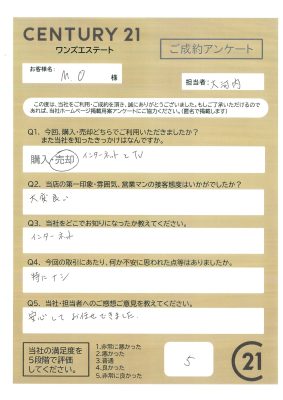 CENTURY 21
ワンズエステート
ご成約アンケート
お客様名:
M.O 様
担当者: 大河内
この度は、当社をご利用・ご成約を頂き、誠にありがとうございました。もしご了承いただけるのであれば、当社ホームページ掲載用アンケートにご協力ください。(匿名で掲載します)
Q1. 今回、購入・売却どちらでご利用いただきましたか?
また当社を知ったきっかけはなんですか。
購入・売却 インターネットとTV
Q2. 当店の第一印象・雰囲気、営業マンの接客態度はいかがでしたか?
大変良い
Q3. 当社をどこでお知りになったか教えてください。
インターネット
Q4. 今回の取引にあたり、何か不安に思われた点等はありましたか。
特にナシ
Q5. 当社・担当者へのご感想ご意見を教えてください。
安心してお任せできました。
当社の満足度を
5段階で評価
してください。
1.非常に悪かった
2.悪かった
3.普通
4.良かった
5.非常に良かった
5
C21